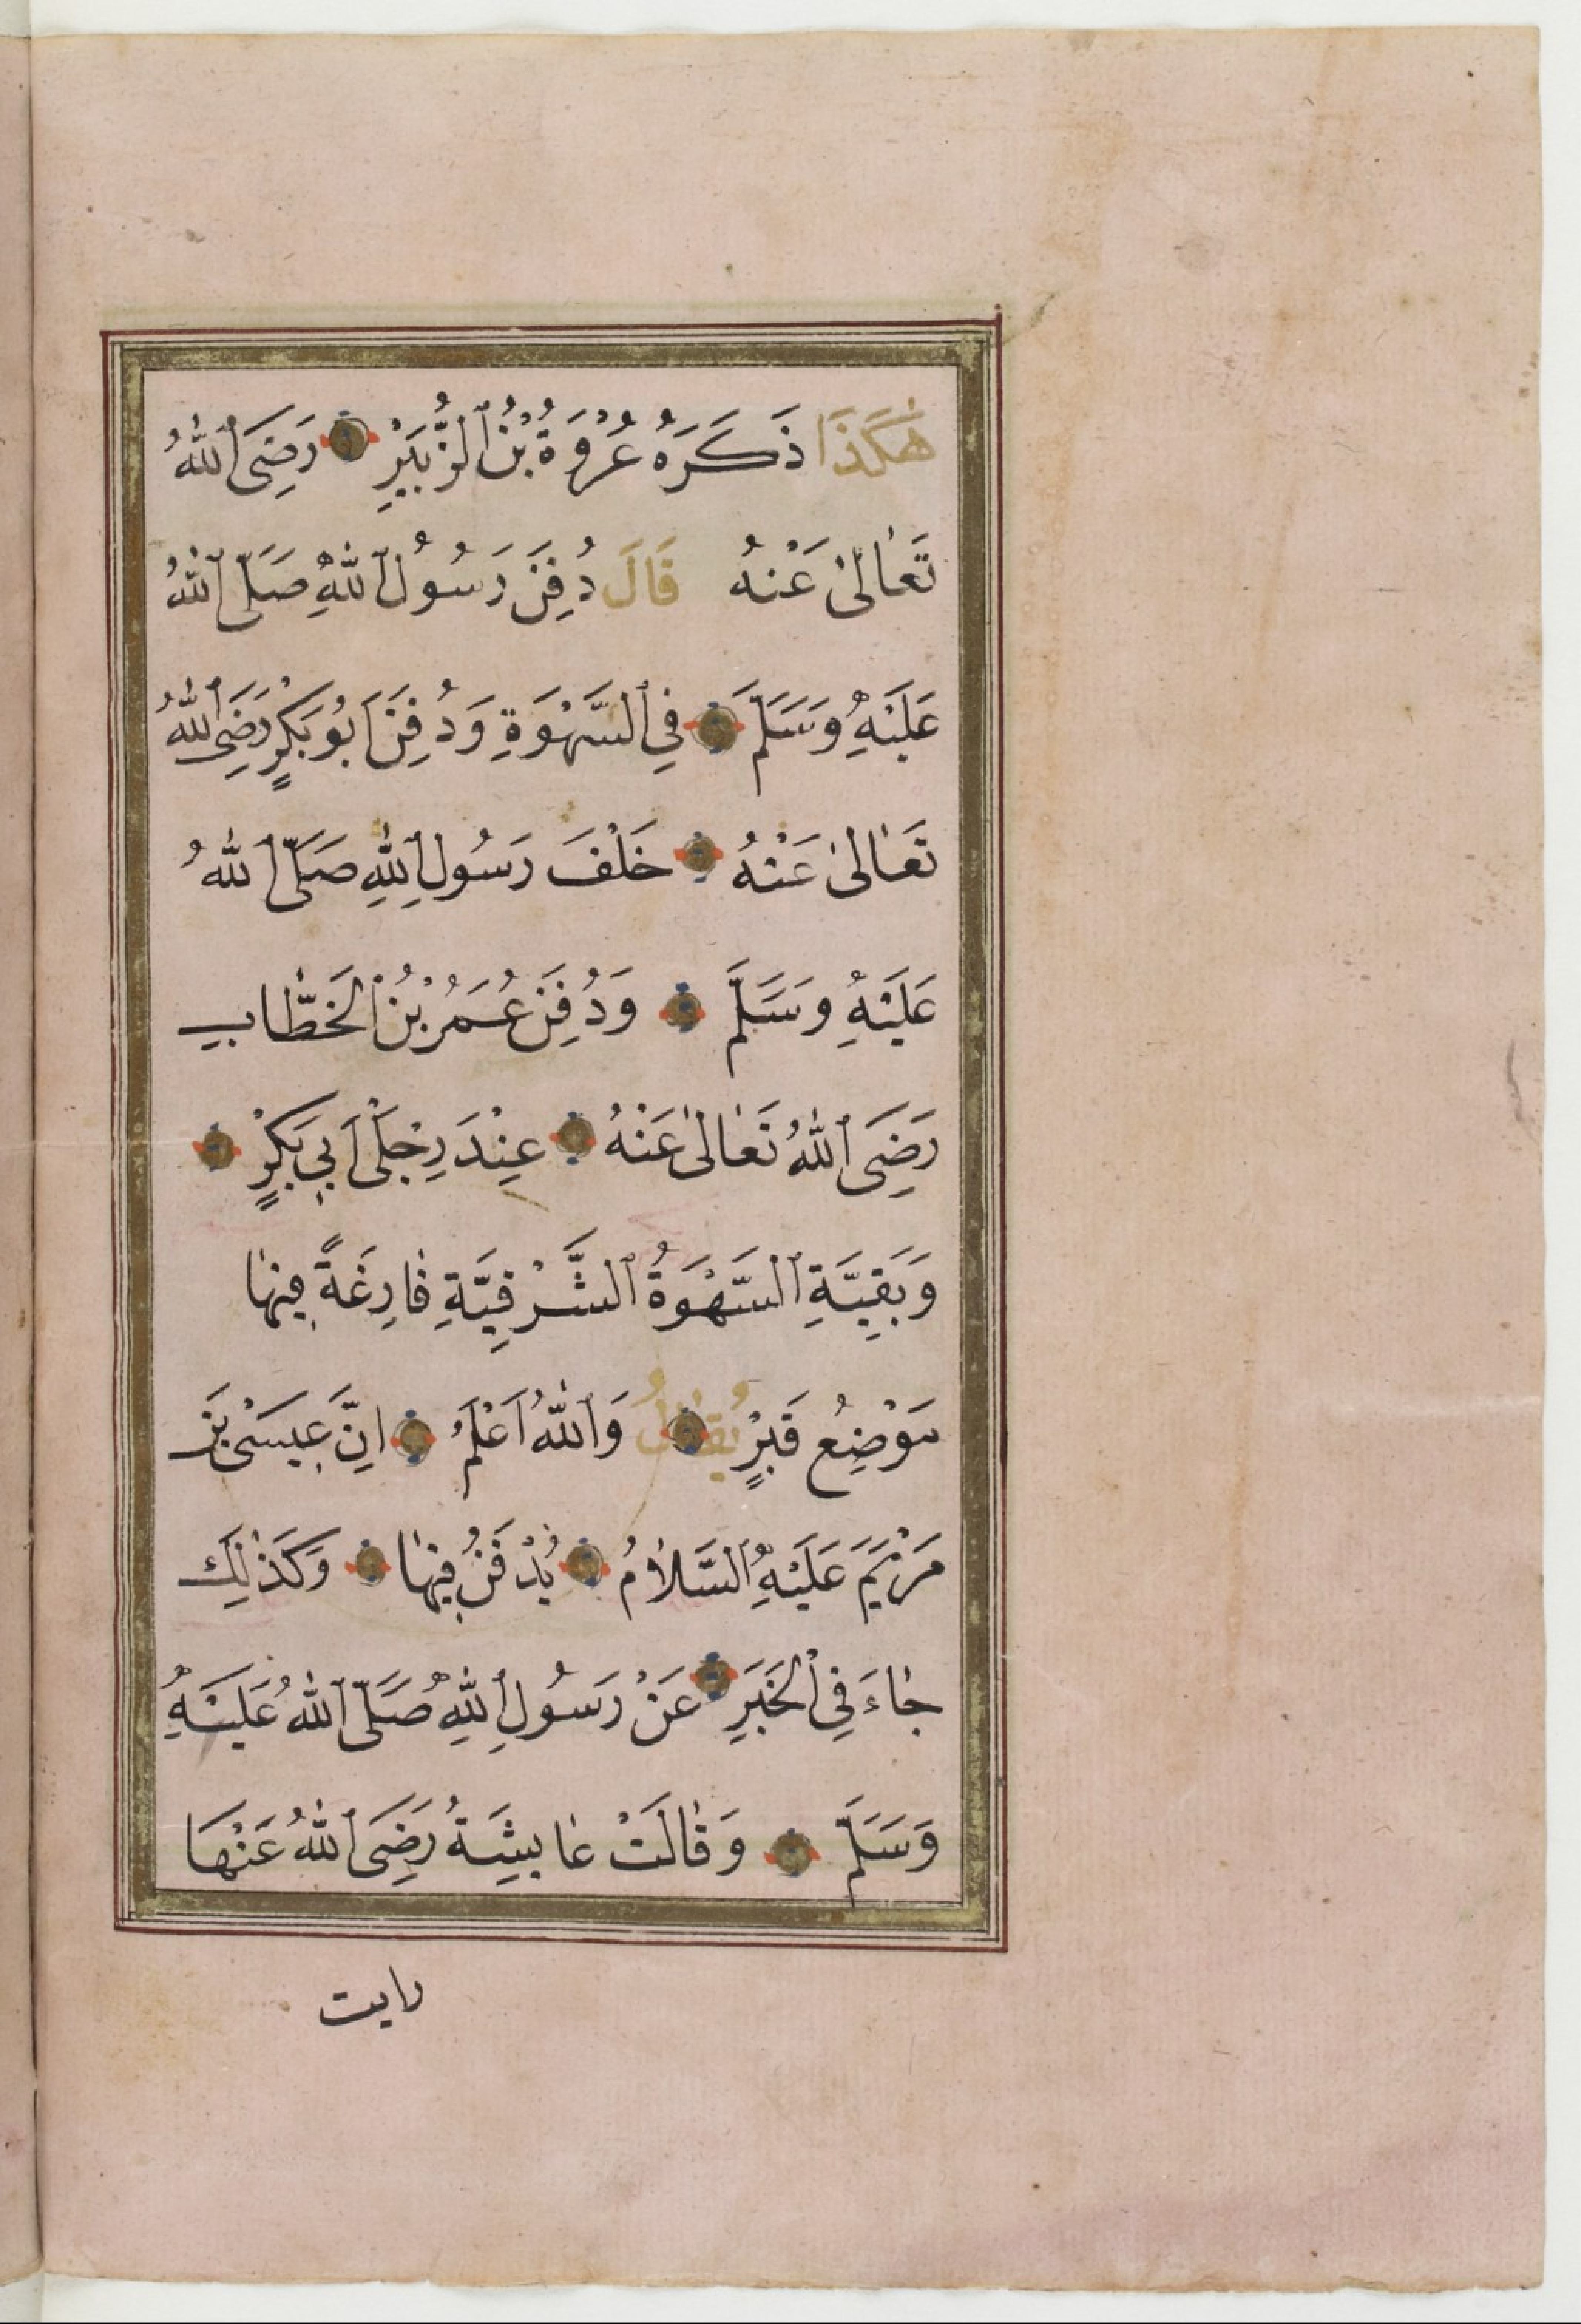 هٰكَذَا ذَكَرَهُ عُرْوَةُ بْنُ الزُّبَيْرِ رَضِيَ اللّٰهُ
تَعَالىٰ عَنْهُ قَالَ دُفِنَ رَسُولُ اللّٰهِ صَلَّى اللّٰهُ
عَلَيْهِ وَسَلَّمَ فِي السَّهْوَةِ وَدُفِنَ اَبُو بَكْرٍ رَضِيَ اللّٰهُ
تَعَالىٰ عَنْهُ خَلْفَ رَسُولِ اللّٰهِ صَلَّى اللّٰهُ
عَلَيْهِ وَسَلَّمَ وَدُفِنَ عُمَرُ بْنُ الْخَطَّابِ
رَضِيَ اللّٰهُ تَعَالىٰ عَنْهُ عِنْدَ رِجْلَىْ اَبِي بَكْرٍ
وَبَقِيَّةِ السَّهْوَةُ الشَّرْقِيَّةِ فَارِغَةً فِيهَا
مَوْضِعُ قَبْرٍ يُقَالُ وَاللّٰهُ اَعْلَمُ اِنَّ عِيسَىْ بْنَ
مَرْيَمَ عَلَيْهِ السَّلَامُ يُدْفَنُ فِيهَا وَكَذٰلِكَ
جَاءَ فِي الْخَبَرِ عَنْ رَسُولِ اللّٰهِ صَلَّى اللّٰهُ عَلَيْهِ
وَسَلَّمَ وَقَالَتْ عَايِشَةُ رَضِيَ اللّٰهُ عَنْهَا
رايت